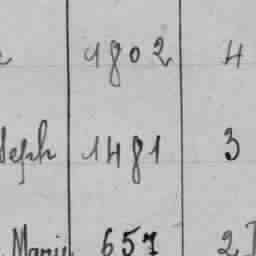 1802 4
seph 1481 3
Marie 657 2